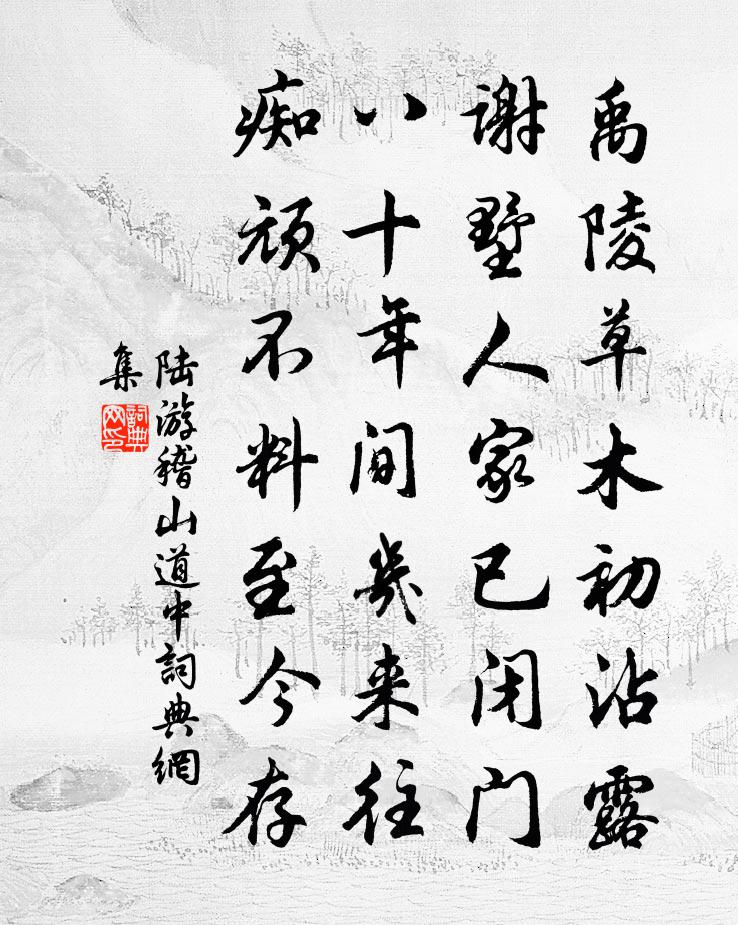 禹陵草木初沾露
谢墅人家已闭门
八十年间几来往
痴顽不料至今存
陆游稽山道中詞典網
集
詞典
网印